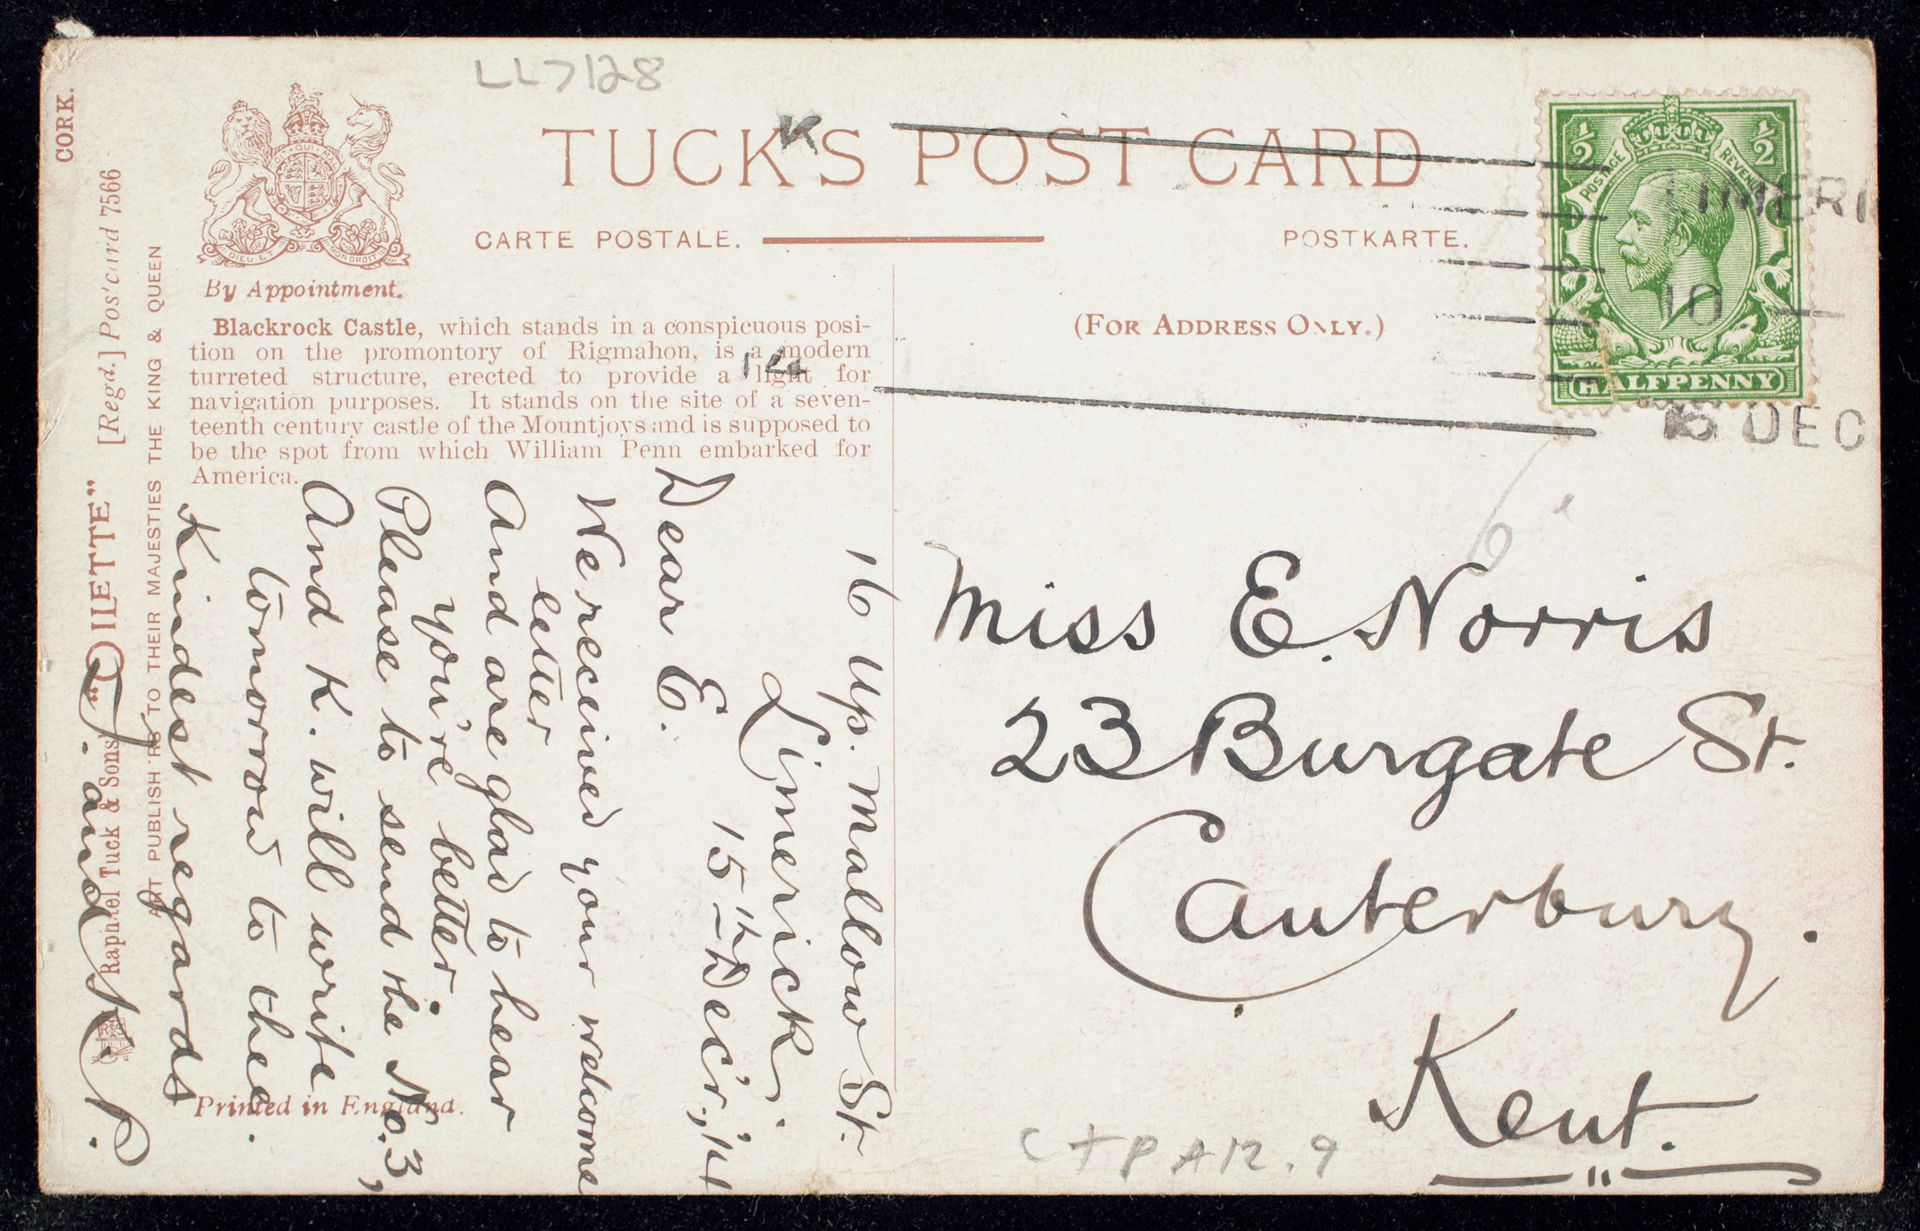 LL7128
CORK.
[Regd.] Postcard 7566
"OILETTE"
Raphael Tuck & Sons'
ART PUBLISHERS TO THEIR MAJESTIES THE KING & QUEEN
DIEU ET MON DROIT
By Appointment.
TUCK'S POST CARD
CARTE POSTALE.
POSTKARTE.
(FOR ADDRESS ONLY.)
Blackrock Castle, which stands in a conspicuous posi-
tion on the promontory of Rigmahon, is a modern
turreted structure, erected to provide a light for
navigation purposes. It stands on the site of a seven-
teenth century castle of the Mountjoys and is supposed to
be the spot from which William Penn embarked for
America.
Printed in England.
½ ½
POSTAGE REVENUE
HALFPENNY
K
LIMERIC
10
14
DEC
16 Up. Mallow St.
Limerick.
15th Dec'r, '14
Dear E.
We received your welcome
letter
And are glad to hear
you're better.
Please to send the No. 3,
And K. will write
tomorrow to thee.
Kindest regards
J. and K. P.
Miss E. Norris
23 Burgate St.
Canterbury.
Kent.